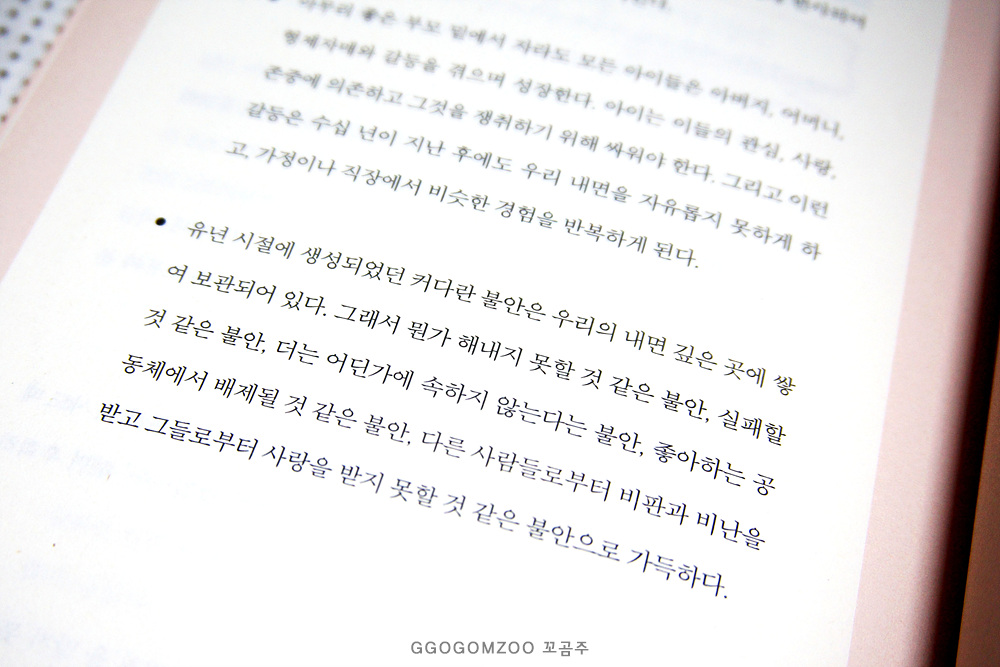 아무리 좋은 부모 밑에서 자라도 모든 아이들은 아버지, 어머니,
형제자매와 갈등을 겪으며 성장한다. 아이는 이들의 관심, 사랑,
존중에 의존하고 그것을 쟁취하기 위해 싸워야 한다. 그리고 이런
갈등은 수십 년이 지난 후에도 우리 내면을 자유롭지 못하게 하
고, 가정이나 직장에서 비슷한 경험을 반복하게 된다.
• 유년 시절에 생성되었던 커다란 불안은 우리의 내면 깊은 곳에 쌓
여 보관되어 있다. 그래서 뭔가 해내지 못할 것 같은 불안, 실패할
것 같은 불안, 더는 어딘가에 속하지 않는다는 불안, 좋아하는 공
동체에서 배제될 것 같은 불안, 다른 사람들로부터 비판과 비난을
받고 그들로부터 사랑을 받지 못할 것 같은 불안으로 가득하다.
GGOGOMZOO 꼬곰주